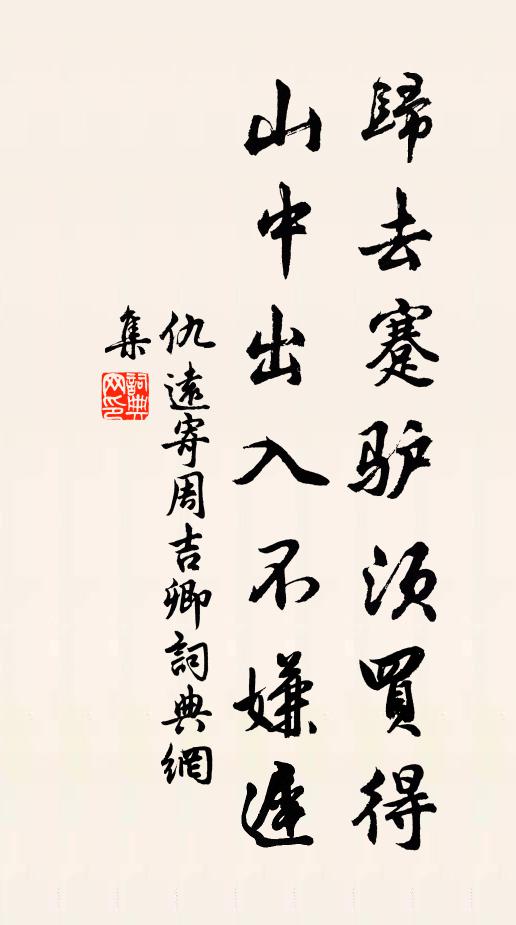 歸去蹇驴須買得
山中出入不嫌遲
仇遠寄周吉卿詞典網
集
詞典
网印